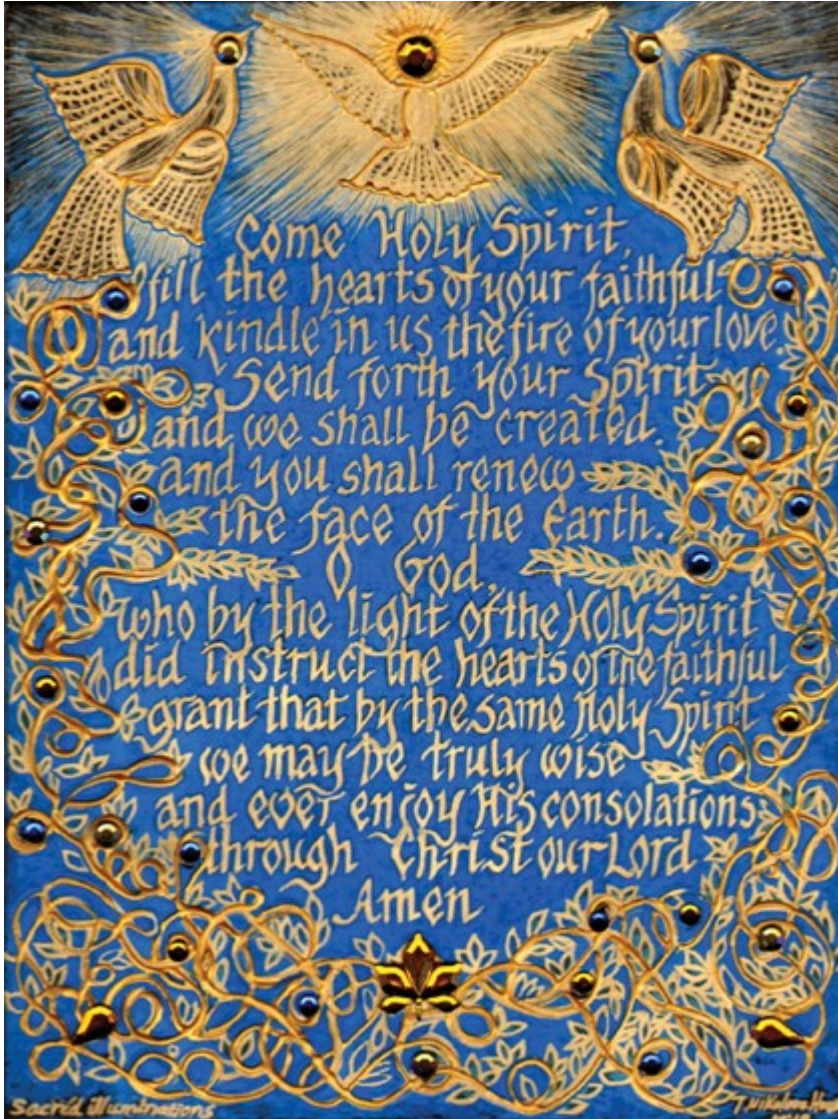 Come Holy Spirit,
fill the hearts of your faithful
and kindle in us the fire of your love.
Send forth your Spirit
and we shall be created.
and you shall renew
the face of the Earth.
O God,
who by the light of the Holy Spirit
did instruct the hearts of the faithful
grant that by the same Holy Spirit
we may be truly wise
and ever enjoy His consolations
through Christ our Lord
Amen
Sacred illuminations